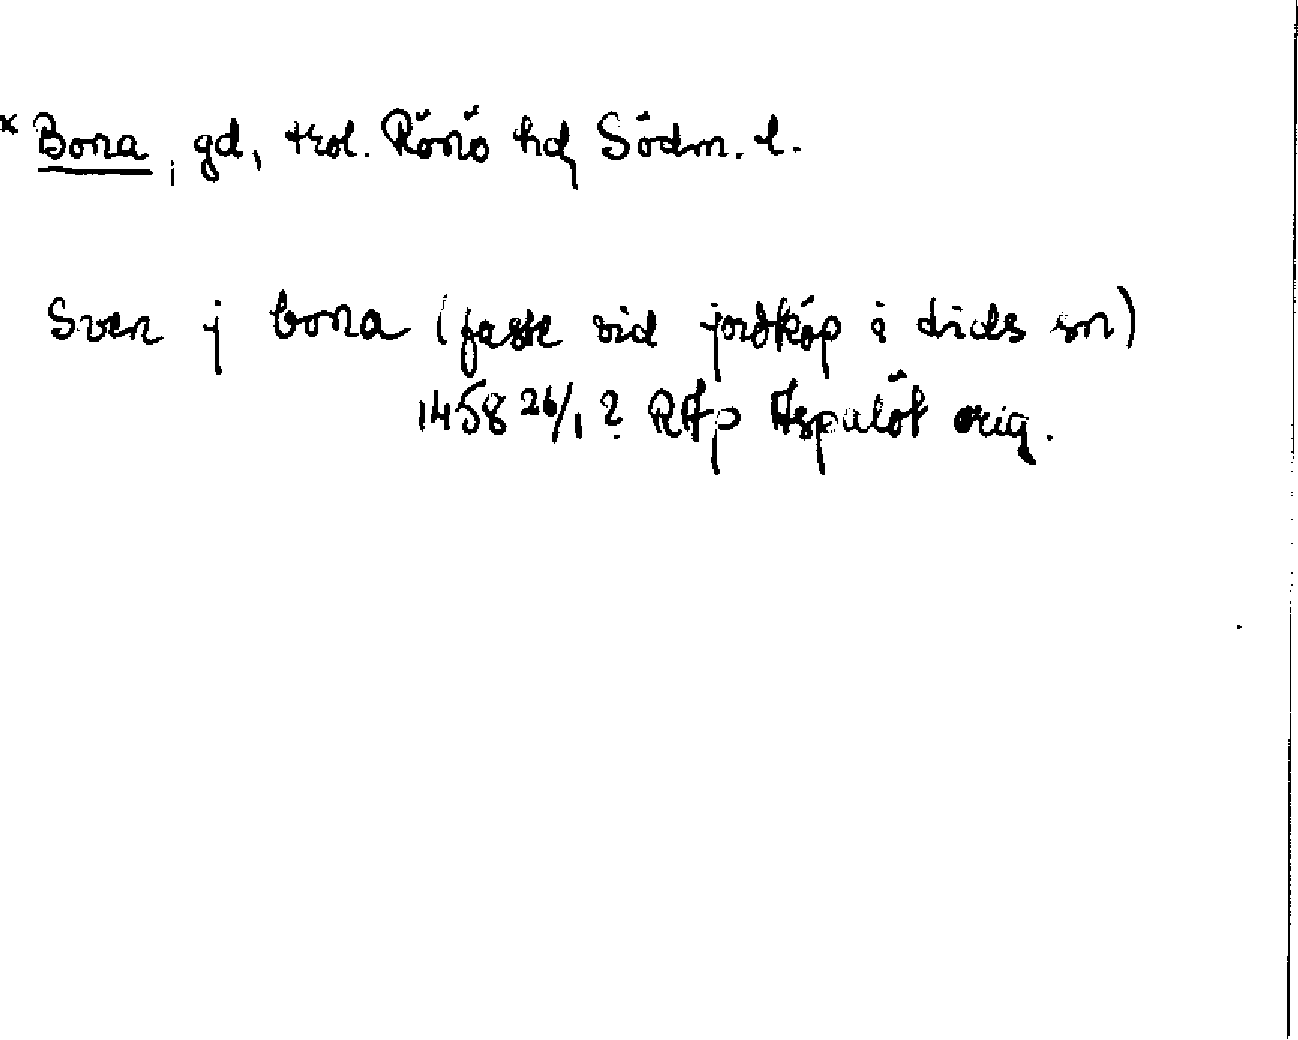 * Bona, gd, trol. Rönö hd, Södm. l.
Sven j bona (faste vid jordköp i Lids sn)
1458 26/1 ? RAp Aspalöt orig.